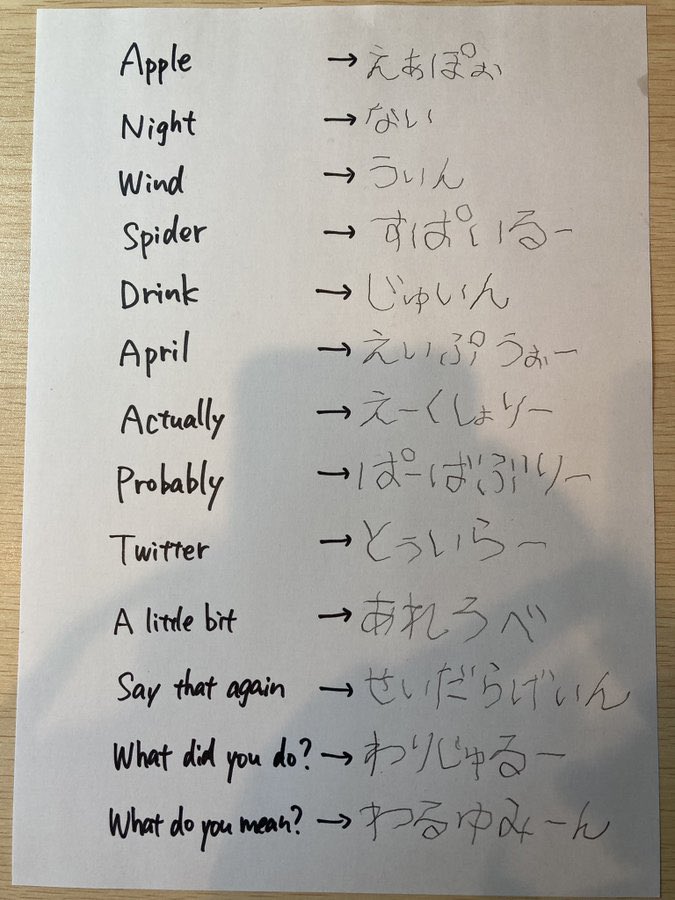 Apple → えぁぽぉ
Night → ない
Wind → うぃん
Spider → すぱいるー
Drink → じゅいん
April → えいぷうぉー
Actually → えーくしょりー
Probably → ぱーばぶりー
Twitter → とぅいらー
A little bit → あれろべ
Say that again → せいだらげいん
What did you do? → わりじゅるー
What do you mean? → わるゆみーん